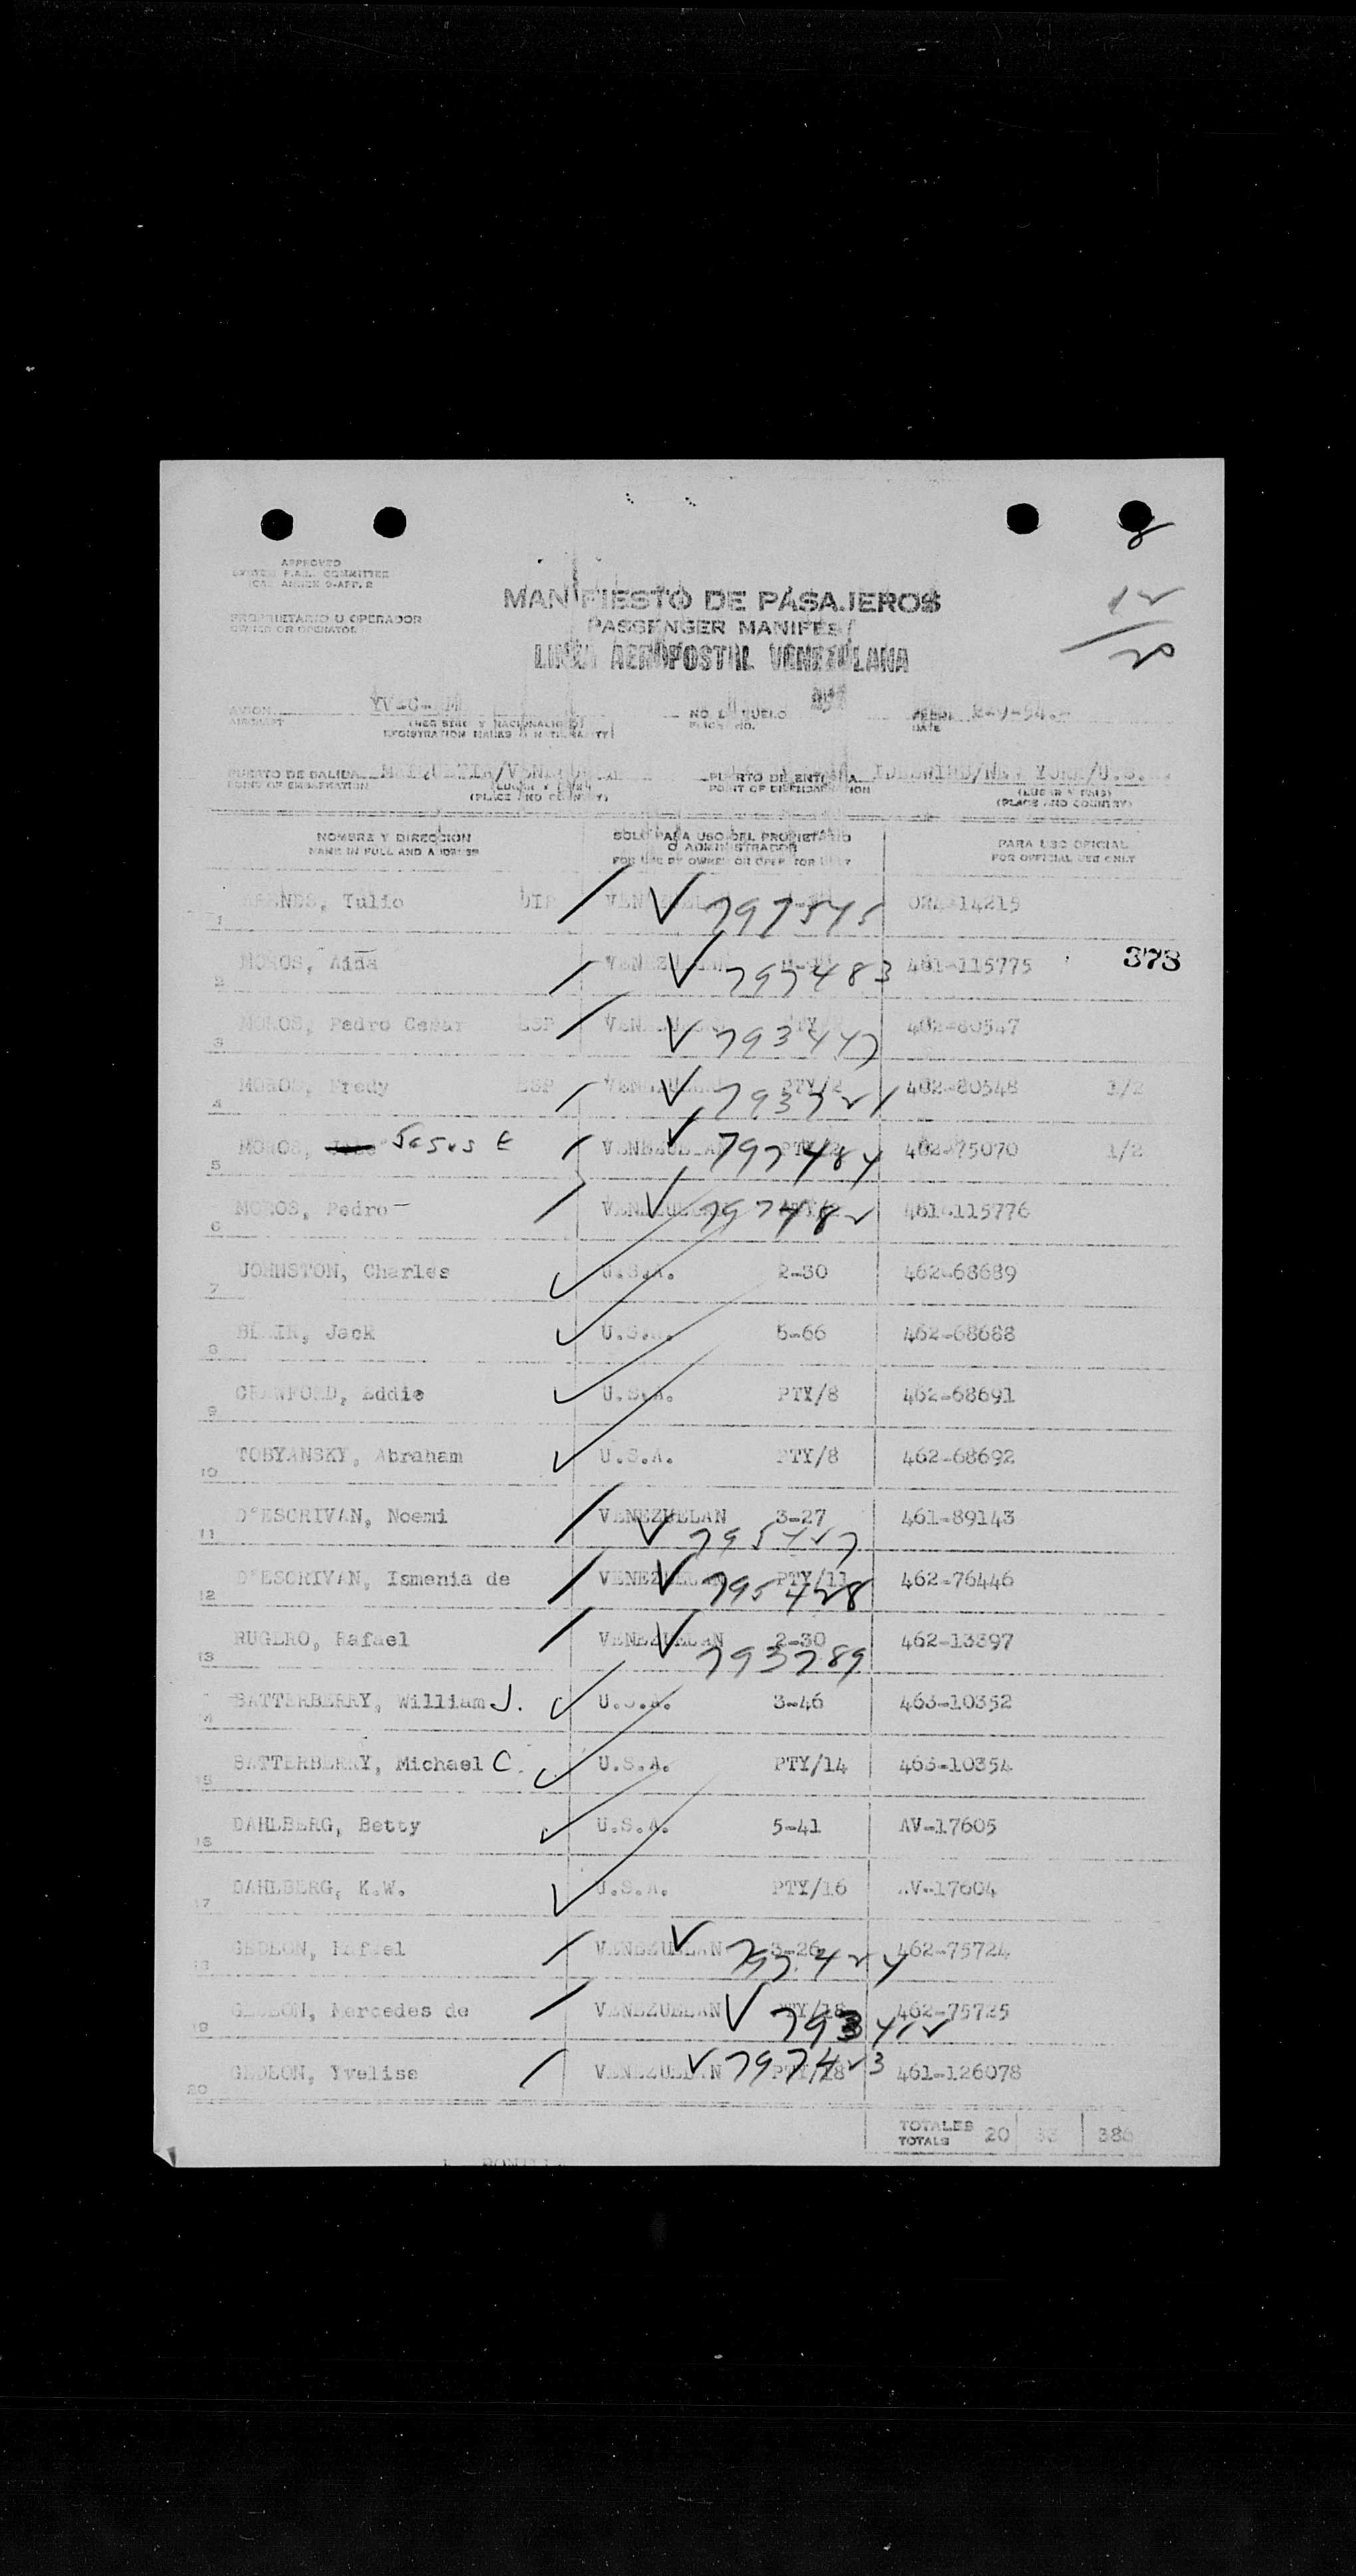 APPROVED
F.A.L. COMMITTEE
ANNEX 9-APP. 2
PROPRIETARIO U OPERADOR
OWNER OR OPERATOR
MANIFIESTO DE PASAJEROS
PASSENGER MANIFEST
LINEA AEROPOSTAL VENEZOLANA
AVION YV-C- NO. VUELO 2-9-54.-
AIRCRAFT FLIGHT NO. DATE
REGISTRATION MARKS NATIONALITY
PUERTO DE SALIDA MAIQUETIA/ PUERTO DE ENTRADA IDLEWILD/NEW YORK/U.S.
POINT OF EMBARKATION (LUGAR Y PAIS) POINT OF DISEMBARKATION (LUGAR Y PAIS)
(PLACE AND COUNTRY) (PLACE AND COUNTRY)
NOMBRE Y DIRECCION SOLO PARA USO DEL PROPIETARIO O ADMINISTRADOR PARA USO OFICIAL
NAME IN FULL AND ADDRESS FOR USE BY OWNER OR OPERATOR ONLY FOR OFFICIAL USE ONLY
1 Tulio DIP 797545 024-14215
2 MOROS, Aida 797483 461-115775 373
3 MOROS, Pedro Cesar ESP 793447 462-80547
4 MOROS, Fredy ESP VENEZUELAN PTY/2 462-80548 1/2
5 MOROS, Jesus E VENEZUELAN PTY/2 797484 462-75070 1/2
6 MOROS, Pedro VENEZUELAN 797482 461-115776
7 JOHNSTON, Charles U.S.A. 2-30 462-68689
8 BLAIR, Jack U.S.A. 5-66 462-68688
9 CRAWFORD, Eddie U.S.A. PTY/8 462-68691
10 TOBYANSKY, Abraham U.S.A. PTY/8 462-68692
11 D'ESCRIVAN, Noemi VENEZUELAN 3-27 795427 461-89143
12 D'ESCRIVAN, Ismenia de VENEZUELAN PTY/11 795428 462-76446
13 RUGERO, Rafael VENEZUELAN 2-30 793789 462-13397
14 SATTERBERRY, William J. U.S.A. 3-46 463-10352
15 SATTERBERRY, Michael C. U.S.A. PTY/14 463-10354
16 DAHLBERG, Betty U.S.A. 5-41 AV-17605
17 DAHLBERG, K.W. U.S.A. PTY/16 AV-17604
18 GEDEON, Rafael VENEZUELAN 3-26 797424 462-75724
19 GEDEON, Mercedes de VENEZUELAN PTY/18 793412 462-75725
20 GEDEON, Yvelise VENEZUELAN PTY/18 797423 461-126078
TOTALES 20 386
TOTALS